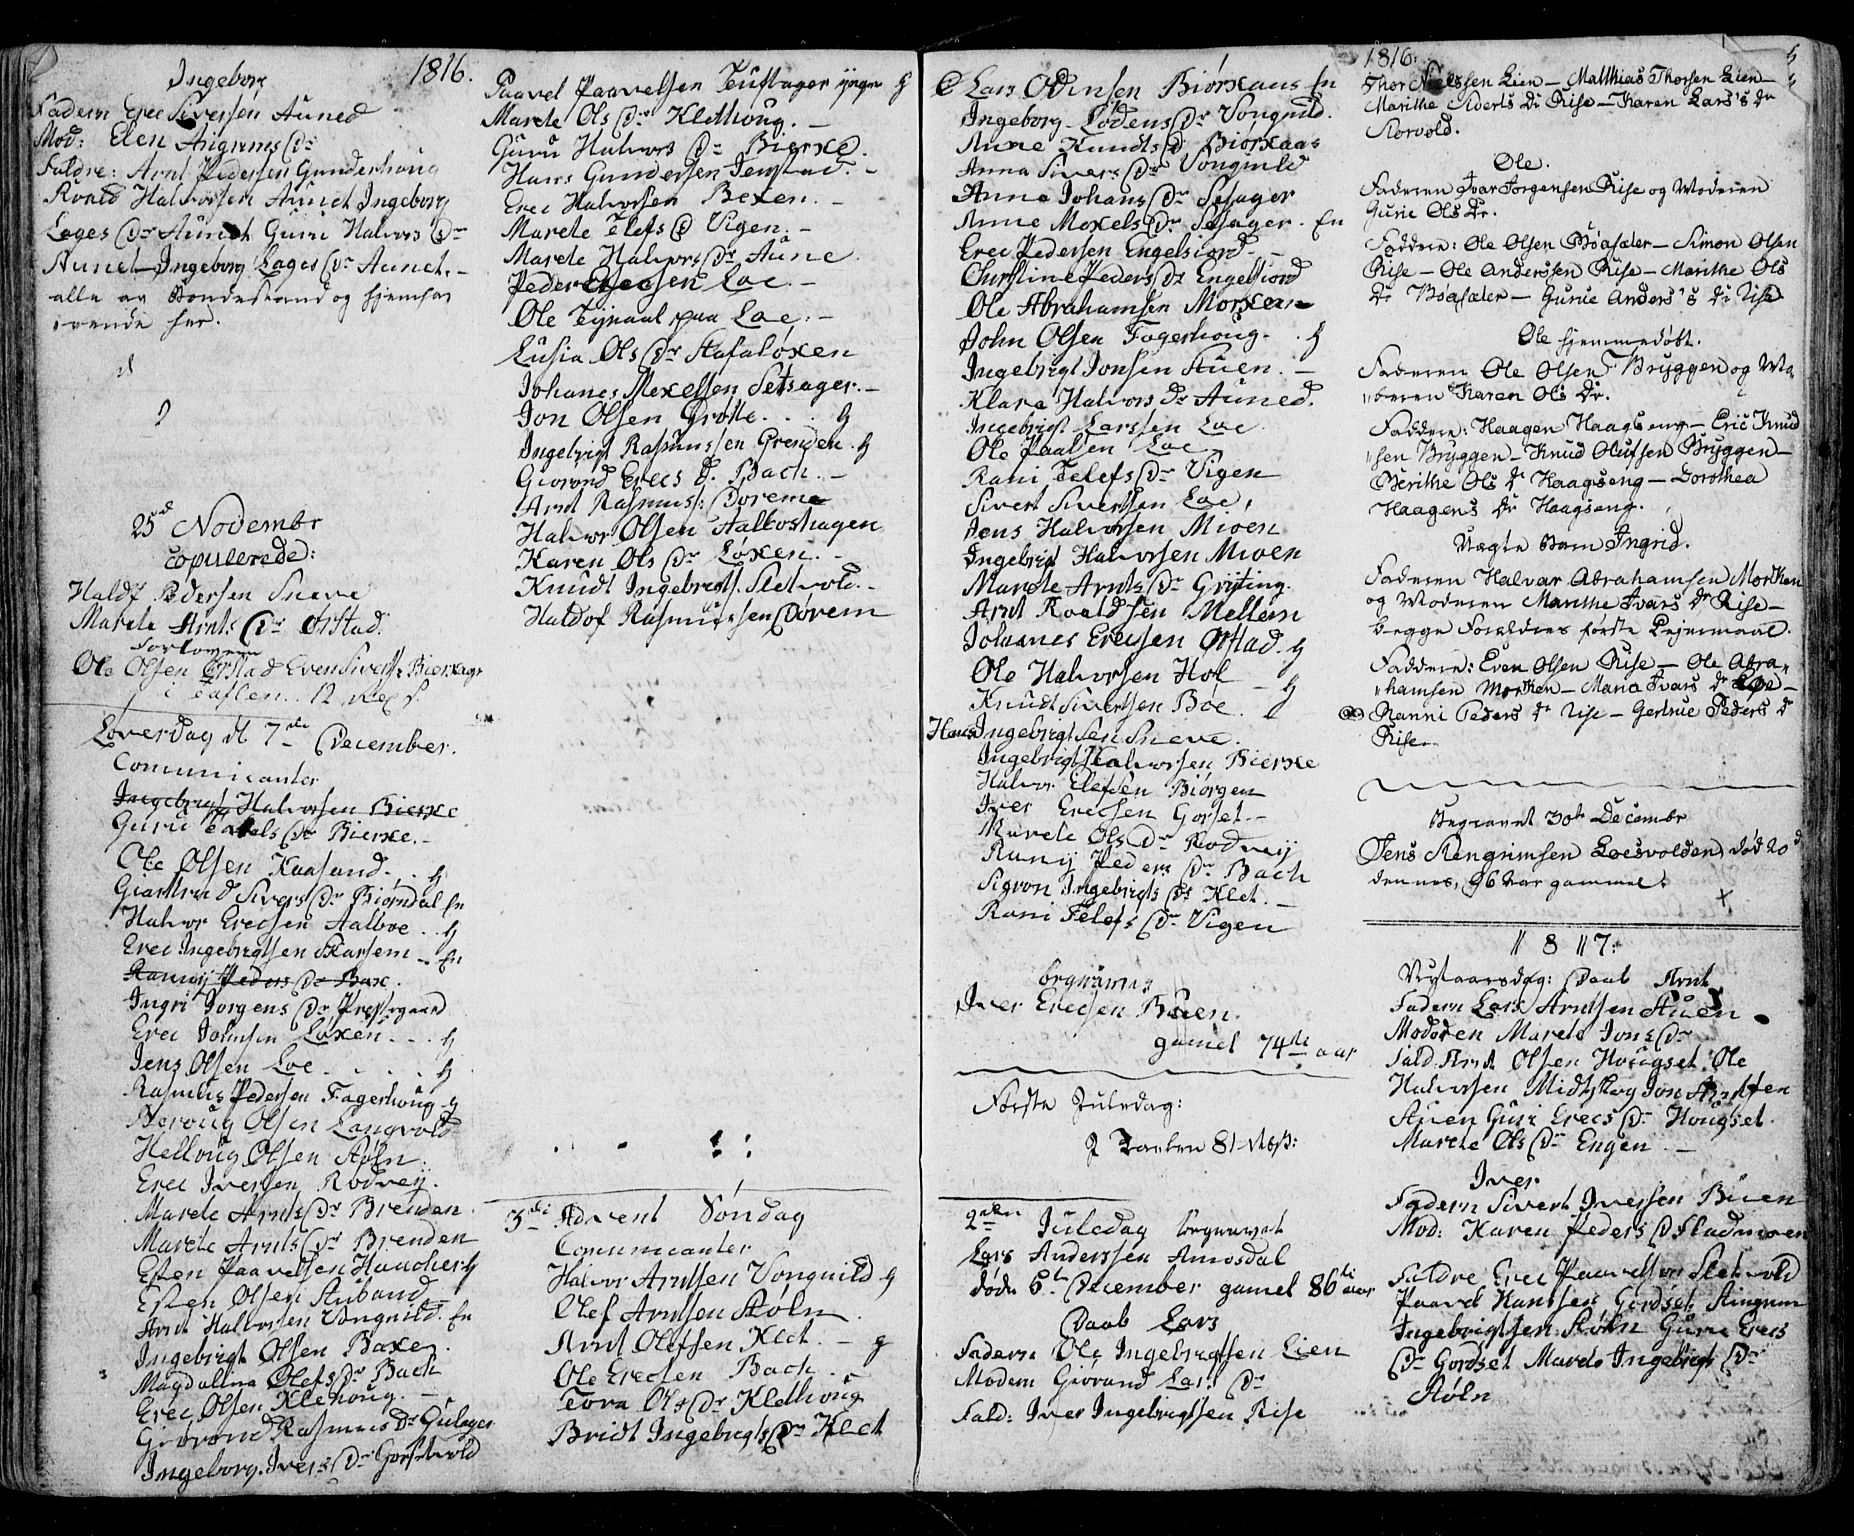 1816.
Ingeborg
Fadern Erec Siversen Auned
Mod: Elen Aigrims Dr
Faldre: Arnt Pedersen Gunderhoug
Roald Halvorsen Aunet Ingeborg
Lages Dr Aunet Guru Halvors Dr
Aunet Ingeborg Lages Dr Aunet.
alle av Bondestand og hjemhø
rende her.
25d Novembr
Copulerede:
Haldf Pedersen Sneve
Marete Arnts Dr Ørstad.
Forlovern
Ole Olsen Ørstad Even Siverts: Bierkager
i Taflen .. 12 rep s.
Løverdag d 7de December.
Comunicanter
Ingebrigt Halvorsen Bierke
Guru Dr Bierke.
Ole Olsen Kaasand .. g
Giartrud Sivers Dr Biørndal En
Halvor Erecsen Aalboe .. g
Erec Ingebrigtsen Skarsem .. En
Ranny Peders Dr Bax.
Ingri Jorgens Dr Prestgaard
Erec Johnsen Løxen ... g
Jens Olsen Loe ..... g
Rasmus Pedersen Fagerhoug g
Beroug Olsen Langvold
Helloug Olsen Støln.
Erec Iversen Rodveÿ.
Marete Arnts Dr Brenden
Marete Arnts Dr Brenden
Esten Paavelsen Haacher g
Esten Olsen Stuband
Arnt Halvorsen Vonguild. En
Ingebrigt Olsen Baxen.
Magdalena Olefs Dr Bach
Erec Olsen Klethoug.
Giorond Rasmus Dr Gulager
Ingeborg Ivers Dr Gorsetvold
Paavel Paavelsen Teustager yngre g
Marete Ols Dr Klethoug.
Guru Halvors Dr Bierke.
Hans Gundersen Jenstad.
Erec Halvorsen Bexen.
Marete Elefs D Vigen.
Marete Halvors Dr Aune.
Peder Erecsen Loe.
Ole paa Loe.
Lusia Ols Dr Stafaløxen
Johanes Mexelsen Setsager.
Jon Olsen Grøtte .. g
Ingebrigt Rasmussen Grenden. g
Giorond Erecs D. Bach.
Arnt Rasmus: Dorema
Halvor Olsen Aalboshagen
Karen Ols Dr Løxen.
Knudt Ingebregts. Sletvold.
Haldof Rasmussen Dorem
3de Advent Søndag
Comunicanter
Halvor Arntsen Vonguild g
Olef Arntsen Støln
Arnt Olefsen Klet. g
Ole Erecsen Bach.
Tora Ols Dr Klethoug
Bridt Ingebrigts Dr Klet
Lars Odinsen Biørkaas En
Ingeborg Lodens Dr Vonguild.
Anne Knudts D Biørkaas
Anna Sivers Dr Vonguild
Anne Johans Dr Sesager
Anne Moxels Dr Sesager. En
Erec Pedersen Engelsiord.
Christine Peders Dr Engelsiord
Ole Abrahamsen Morken
John Olsen Fagerhoug. . g
Ingebrigt Jonsen Stuen.
Klara Halvors Dr Auned.
Ingebrigt Larssen Loe
Ole Paalsen Loe
Rani Elefs Dr Vigen
Sivert Sivertsen Loe,
Jens Halvorsen Mioen
Ingebrigt Halvorsen Mioen
Marete Arnts Dr Grÿting.
Arnt Roaldsen Mellem
Johanes Erecsen Ørstad. g
Ole Halvorsen Hol
Knudt Siversen Boe. g
Hans Ingebrigtsen Sneve.
Ingebrigt Halvorsen Bierke
Halvor Elefsen Biørgen
Iver Erecsen Gorset.
Marete Ols Dr Rodveÿ
Ranÿ Peders Dr Bach
Sigron Ingebrigts Dr Klet.
Rani Elefs Dr Vigen
begravne
Iver Erecsen Buen.
gamel 74de aar
Første Juledag:
I Tavlen 81 rbs:
2den Juledag begravet
Lars Anderssen Amosdal
døde 5te December gamel 86de aar
Daab Lars
Fadern Ole Ingebrigtsen Lien
Modern Giorund Lars Dr
Fald: Iver Ingebrigtsen Rise
1816.
Thor Nielssen Lien – Matthias Thorsen Lien –
Marithe Siverts Dr Rise – Karen Lars's Dr
Storvold.
Ole.
Faderen Ivar Jorgensen Rise og Moderen
Gurie Ols Dr.
Faddere: Ole Olsen Bøasæter – Simon Olsen
Rise – Ole Anderssen Rise – Marithe Ols
Dr Bøasæter – Gurie Anders's Dr Rise
Ole hjemmedøbt.
Faderen Ole Olsen Bryggen og Mo
"deren Karen Ols Dr.
Faddere: Haagen Haagseng – Eric Knud
"sen Bryggen – Knud Olufsen Bryggen –
Berithe Ols Dr Haagseng – Dorothea
Haagens Dr Haagseng.
Uægte Barn Ingrid.
Faderen Halvar Abrahamsen Morken
og Moderen Marithe Ivars Dr Rise –
begge Forældres første Leiermaal.
Faddere: Even Olsen Rise – Ole Abra"
"hamsen Morken – Maria Ivars Dr Loe –
Ranni Peders Dr Rise – Gertrue Peders Dr
Rise.
Begravet 30te Decembr
Jens Stengrimsen Loesvolden, død 20d
dennes, 96 Aar gammel.
1817:
Nytaarsdag: Daab Arnt
Fadern Lars Arntsen Stuen
Moderen Marete Jons Dr
Fald. Arnt Olsen Hougset Ole
Halvorsen Midtskog Jon Arntsen
Stuen Guri Erecs Dr Hougset.
Marete Ols Dr Engen
Iver
Fadern Sivert Iversen Buen
Mod: Karen Peders D Stadmoen
Faldre Erec Paavelsen Sletvold
Paavel Hanssen Gordset Aingrim
Ingebrigtsen Støln Guru Erecs
Dr Gordset Marete Ingebrigts Dr
Støln